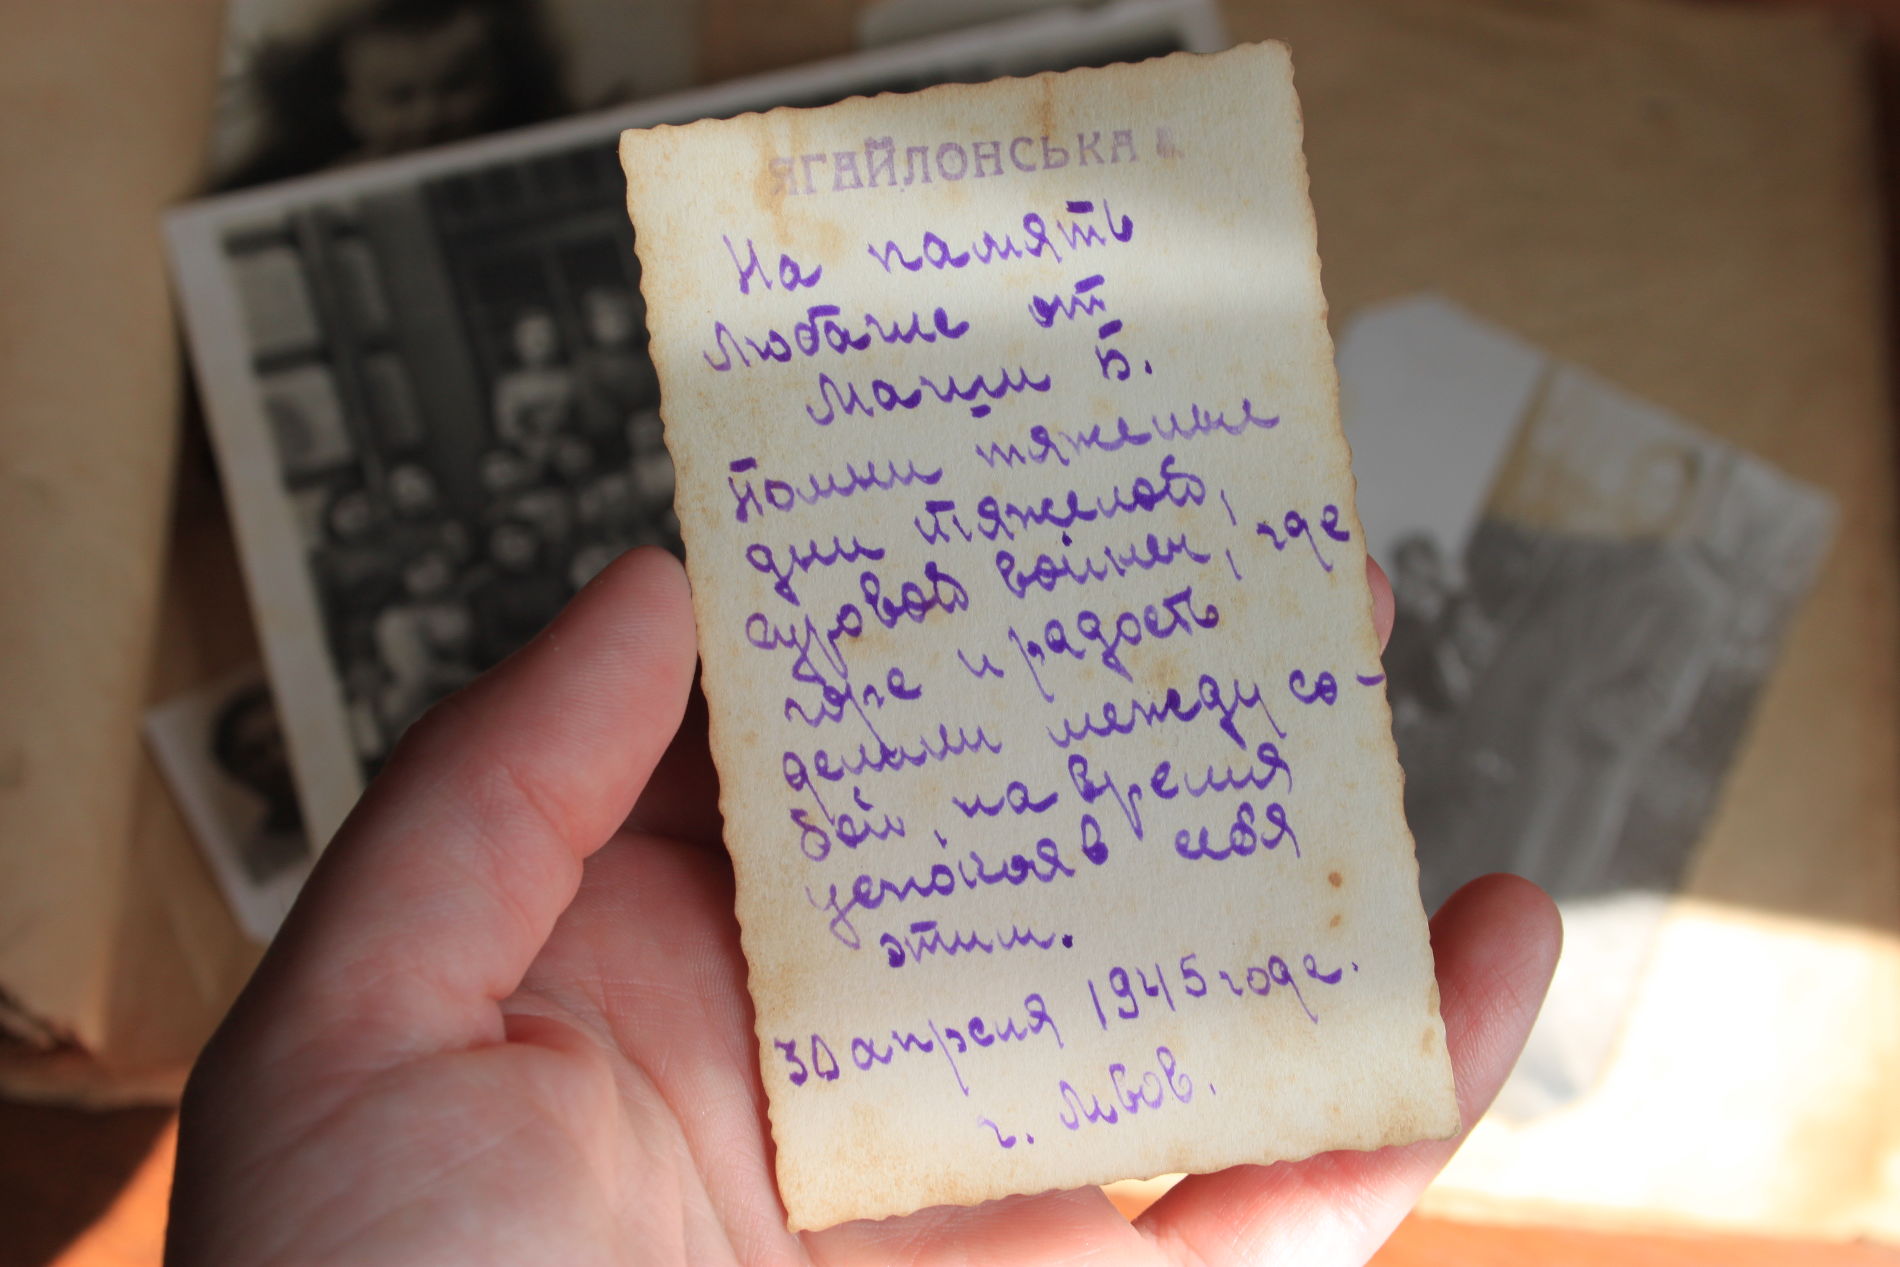 ЯГАЙЛОНСЬКА
На память
Любаше от
Маши Б.
Помни тяжелые
дни тяжелой,
суровой войны, где
горе и радость
делили между со-
бой, на время
успокоя в себя
этим.
30 апреля 1945 годе.
г. Львов.